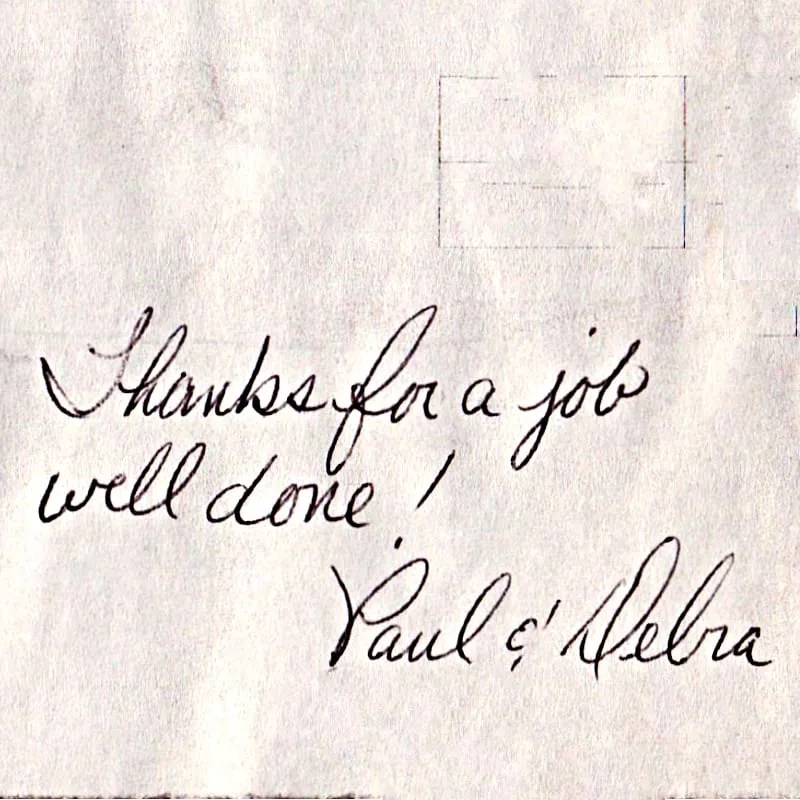 Thanks for a job
well done!
Paul & Debra